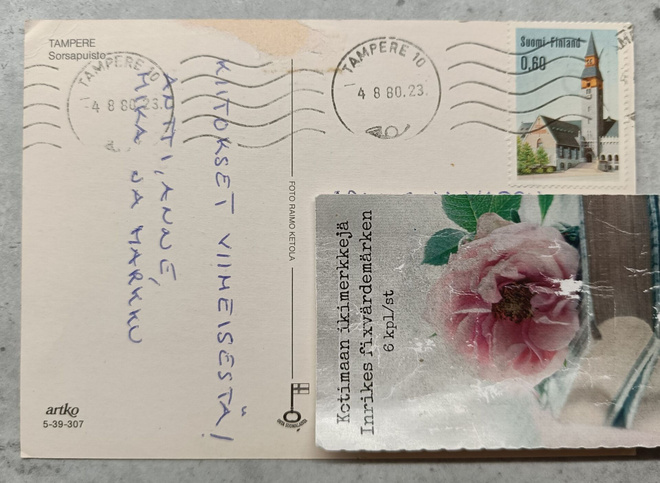 TAMPERE
Sorsapuisto
TAMPERE 10
4 8 80.23.
TAMPERE 10
4 8 80.23.
Suomi-Finland
0,60
KIITOKSET VIIMEISESTÄ!
ANNE,
JA MARKKU
FOTO RAIMO KETOLA
artko
5-39-307
Kotimaan ikimerkkejä
Inrikes fixvärdemärken
6 kpl/st